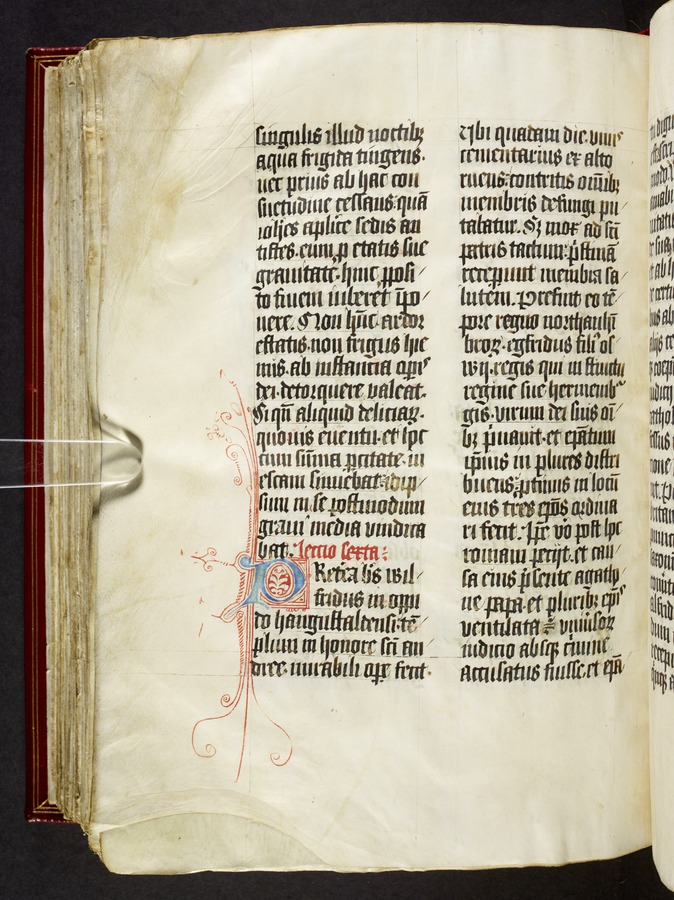 singulis illud noctibꝫ
aqua frigida tingens·
nec prius ab hac con
suetudine cessans· quā
ioħes aplice sedis an
tistes· eum, ꝓ etatis sue
grauitate· hinc, pposi
to finem iuberet īpo
nere. Non hūc· ardor
estatis· non frigus hie
mis· ab instantia opis
dei· detorquere ualeat·
Si qn̄ aliquid deliciaꝝ·
quouis euentu· et ipe
cum sūma ꝑcitate· in
escam sinuebat·
sum in se postmodum
graui media uindica
bat. Lectio sexta:
Retea bs wil
fridus in oppi
do haugustaldensi· tē
plum in honore sc̄i an
dree· mirabili ope fecit·
Ubi quadam die· unus
cementarius ex alto
ruens· contritis om̄ibꝫ
membris defungi pu
tabatur. Sꝫ mox ad sc̄i
patris tactum· p̄stinā
receperunt membra sa
lutem. Prefuit eo tē
pore regno northanhī
broꝝ· egfridus fili' os
wij· regis qui instinctu
regine sue hermenib
gis· uirum dei suis oī
bꝫ p̄uauit· et ep̄atum
ip̄ius in plures distri
buens· ꝓtinus in locū
eius tres ep̄os ordina
ri fecit. Ip̄e ū̊o post hec
romam perijt· et cau
sa eius p̄sente agatho
ne papa· et pluribꝫ ep̄is
uentilata
iudicio absqꝫ crimine
accusatus fuisse· et ep̄a